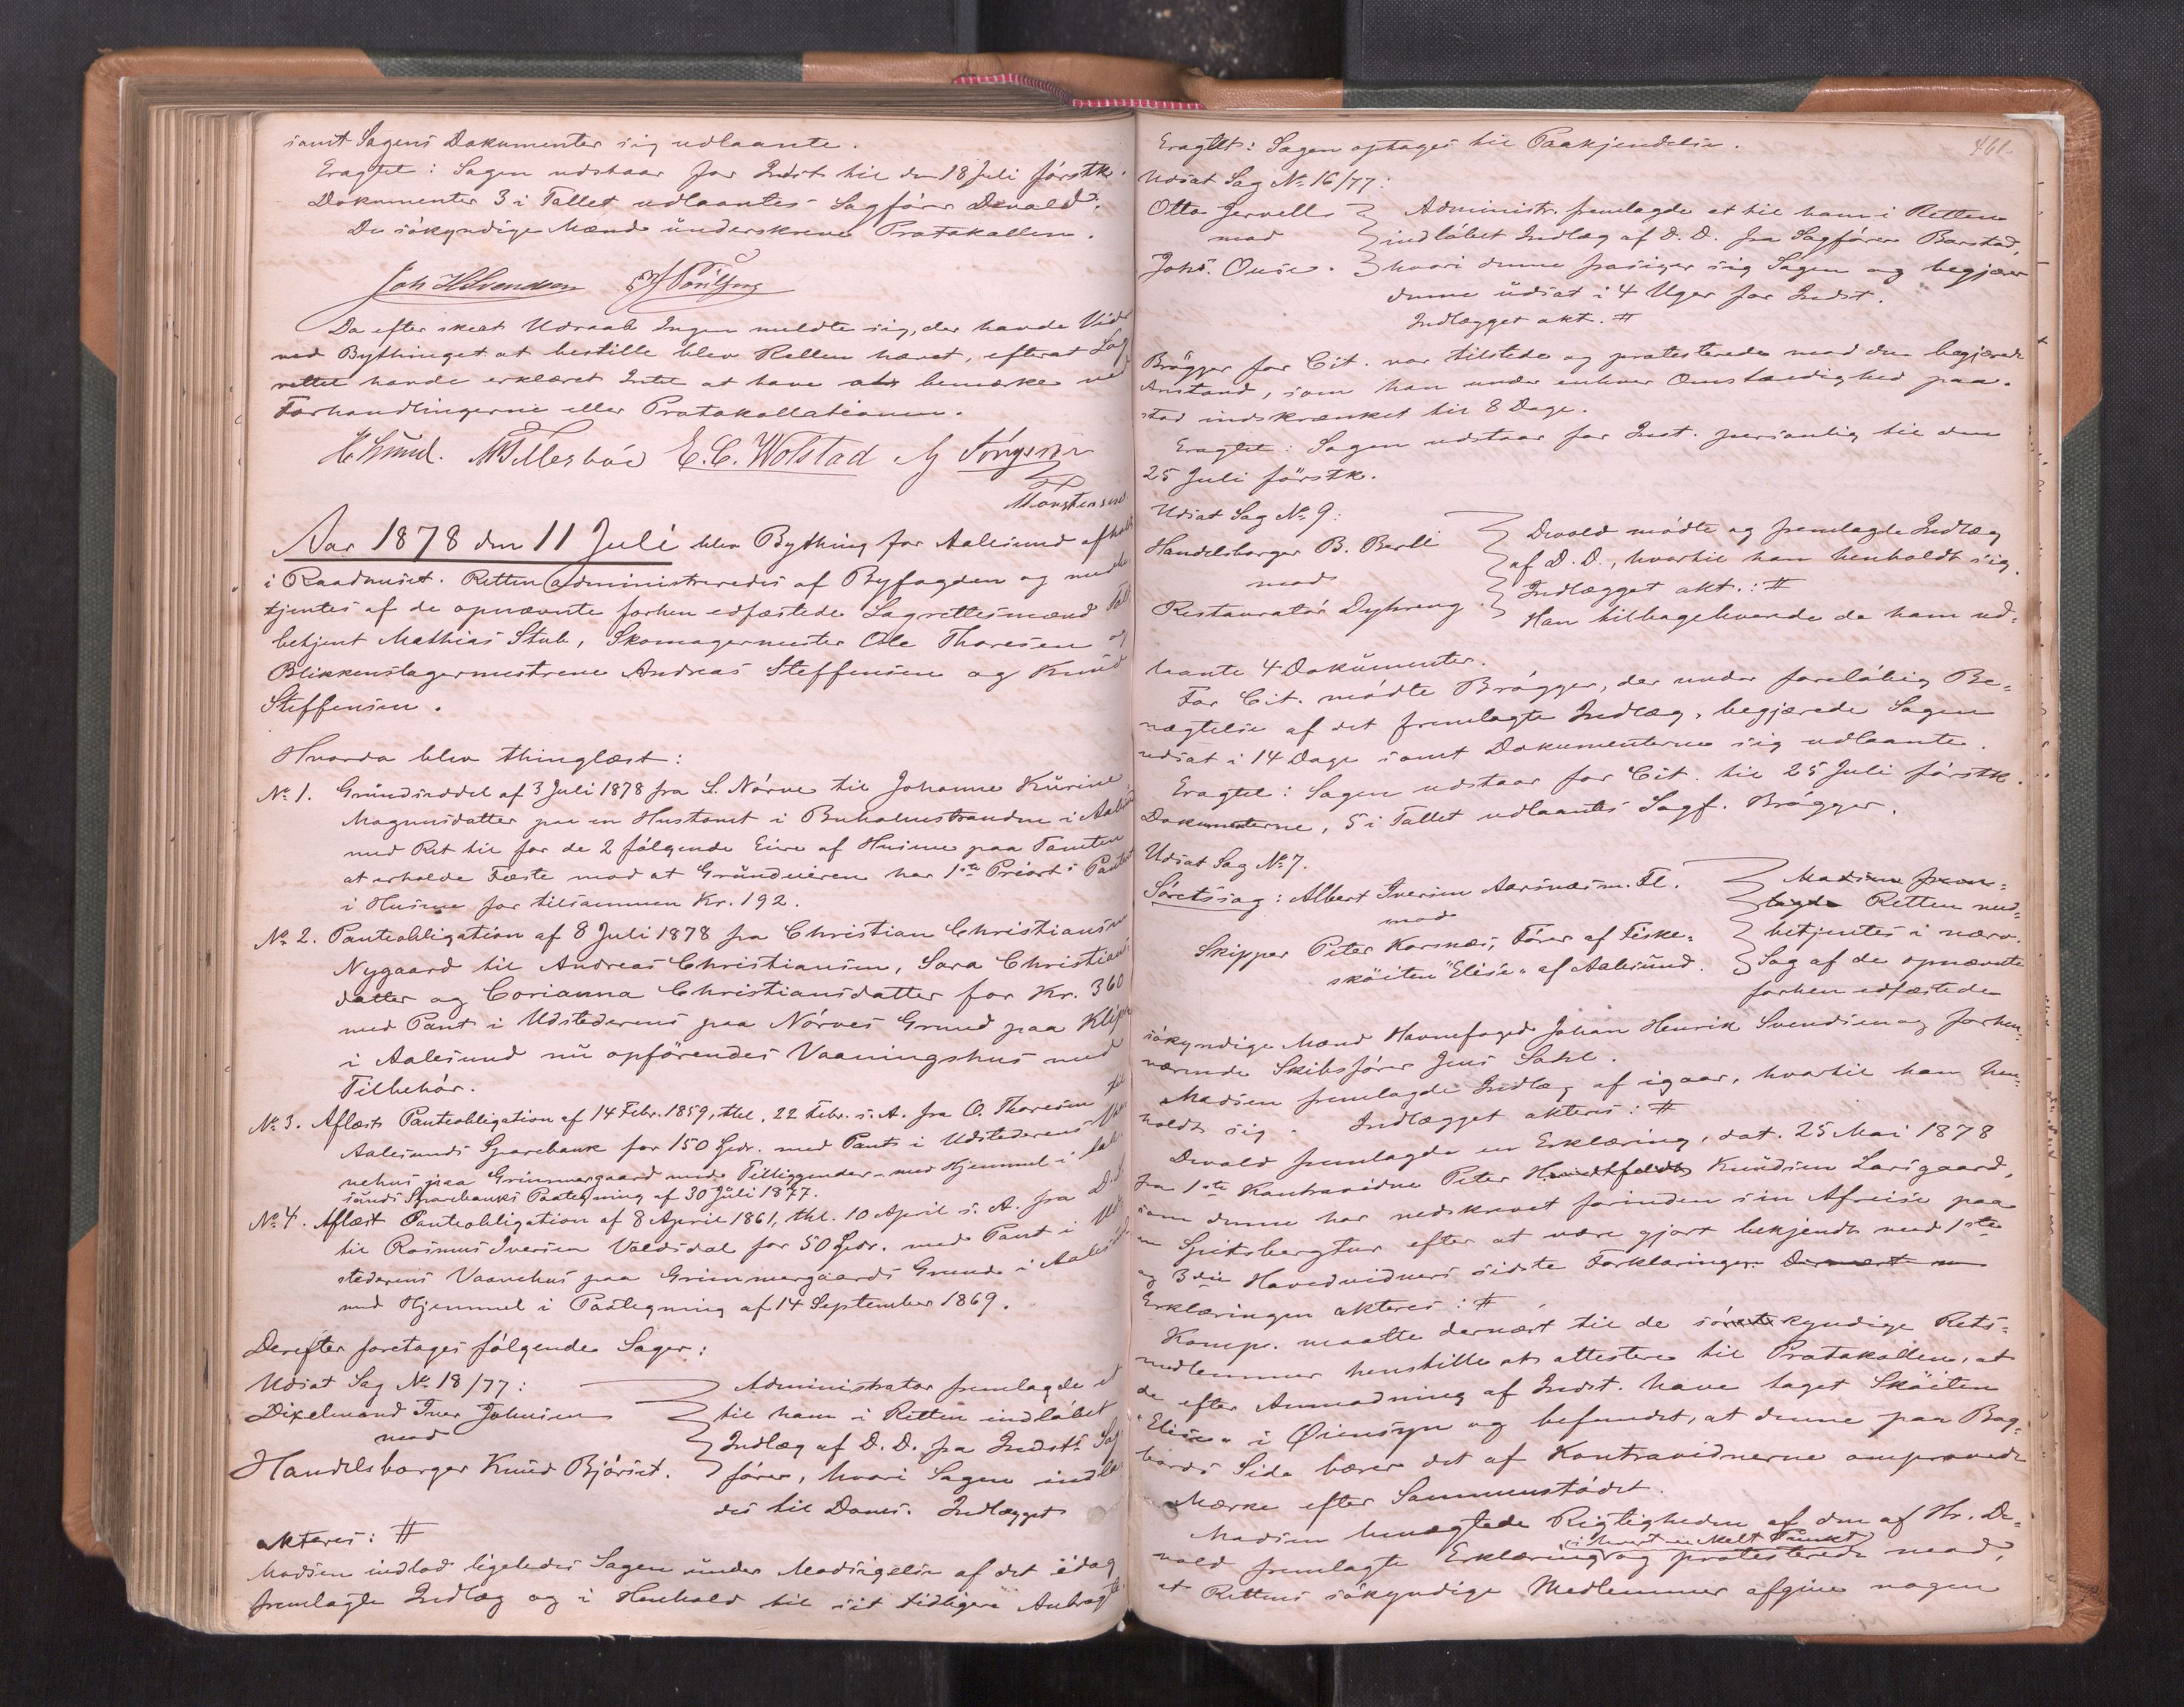 samt Sagens Dokumenter sig udlaante.
Eragtet: Sagen udstaar for Indst. til den 18 Juli förstk.
Dokumenter 3 i Tallet udlaantes Sagförer Devold.
De sökyndige Mænd underskrev Protokollen.
Joh HSvendsen
Da efter skeet Udraab Ingen meldte sig, der havde Vidr
ved Bythinget at bestille blev Retten hævet, efterat Lag
rettet havde erklæret Intet at have at bemærke ved
Forhandlingerne eller Protokollationen.
E. C. Wolstad
Aar 1878 den 11 Juli blev Bything for Aalesund afholdt
i Raadhuset. Retten administreredes af Byfogden og medbe
tjentes af de opnævnte forhen edfæstede Lagrettesmænd
betjent Mathias Stub, Skomagermester Ole Thoresen og
Blikkenslagermestrene Andreas Steffensen og Knud
Steffensen.
Hvorda blev thinglæst:
No 1. Grundseddel af 3 Juli 1878 fra S. Nörve til Johanne Kurine
Magnusdatter paa en Hustomt i Buholmstranden i Aalesund
med Ret til for de 2 fölgende Eiere af Husene paa Tomten
at erholde Fæste mod at Grundeieren har 1ste Priorit. Panteret
i Husene for tilsammen Kr. 192.
No 2. Panteobligation af 8 Juli 1878 fra Christian Christiansen
Nygaard til Andreas Christiansen, Sara Christians
datter og Corianna Christiansdatter for Kr. 360
med Pant i Udstederens paa Nörves Grund paa
i Aalesund nu opförendes Vaaningshus med
Tilbehör.
No 3. Aflæst Panteobligation af 14 Febr. 1859, thl. 22 Febr. s. A. fra O. Thoresen til
Aalesunds Sparebank for 150 Spdr. med Pant i Udstederens
nehus paa Grimmergaard med Tilliggender - med Hjemmel i Aale
sunds Sparebanks Paategning af 30 Juli 1877.
No 4. Aflæst Panteobligation af 8 April 1861, thl. 10 April s. A. fra
til Rasmus Iversen Valdsdal for 50 Spdr. med Pant i Ud
stederens Vaanehus paa Grimmergaards Grund i Aalesund
med Hjemmel i Paategning af 14 September 1869.
Derefter foretoges fölgende Sager:
Udsat Sag No 18/77:
Dixelmand Iver Johnsen
mod
Handelsborger Knud Björset.
Administrator fremlagde et
til ham i Retten indlöbet
Indlæg af D. D. fra Indst.s Sag
förer, hvori Sagen indlo
des til Doms. Indlægget
akteres: #
Madsen indlod ligeledes Sagen under Modsigelse af det idag
fremlagte Indlæg og i Henhold til sit tidligere Anbragte.
461.
Eragtet: Sagen optages til Paakjendelse.
Udsat Sag No 16/77:
Otto Jervell
mod
Johs. Ouse.
Administr. fremlagde et til ham i Retten
indlöbet Indlæg af D. D. fra Sagförer Barstad,
hvori denne frasiger sig Sagen og begjærer
denne udsat i 4 Uger for Indst.
Indlægget akt. #
Brögger for Cit. var tilstede og protesterede mod den begjærede
Anstand, som han under enhver Omstændighed paa-
stod indskrænket til 8 Dage.
Eragtet: Sagen udstaar for Inst. personlig til den
25 Juli förstk.
Udsat Sag No 9:
Handelsborger B. Berli
mod
Restauratör Dyhreng.
Devold mödte og fremlagde Indlæg
af D. D., hvortil han henholdt sig.
Indlægget akt.: #
Han tilbageleverede de ham ud-
laante 4 Dokumenter.
For Cit. mödte Brögger, der under forelöbig Be-
nægtelse af det fremlagte Indlæg, begjærede Sagen
udsat i 14 Dage samt Dokumenterne sig udlaante.
Eragtet: Sagen udstaar for Cit. til 25 Juli förstk.
Dokumenterne, 5 i Tallet udlaantes Sagf. Brögger.
Udsat Sag No 7.
Söretssag: Albert Iversen Aarsnæs m. Fl.
mod
Skipper Peter Korsnæs, Förer af Fiske-
sköiten "Elise" af Aalesund.
Madsen frem-
lagde Retten med-
betjentes i nærv.
Sag af de opnævnte
forhen edfæstede
sökyndige Mænd Havnefoged Johan Henrik Svendsen og forhen-
værende Skibsförer Jens Sahl.
Madsen fremlagde Indlæg af igaar, hvortil han hen-
holdt sig. Indlægget akteres: #
Devold fremlagde en Erklæring, dat. 25 Mai 1878
fra 1ste Kontravidne Peter Knudsen Larsgaard,
som denne har nedskrevet forinden sin Afreise paa
en Spitsbergtur efter at være gjort bekjendt med 1ste
og 3die Hovedvidners sidste Forklaringer. Dernæst
Erklæringen akteres: #
Komp. maatte dernæst til de sökyndige Rets-
medlemmer henstille at attestere til Protokollen, at
de efter Anmodning af Indst. have taget Sköiten
"Elise" i Öiensyn og befundet, at denne paa Bag-
bords Side bærer det af Kontravidnerne omprovede
Mærke efter Sammenstödet.
Madsen benægtede Rigtigheden af den af Hr. De-
i hvert et Melt Punkt
vold fremlagte Erklæring og protesterede mod,
at Rettens sökyndige Medlemmer afgive nogen